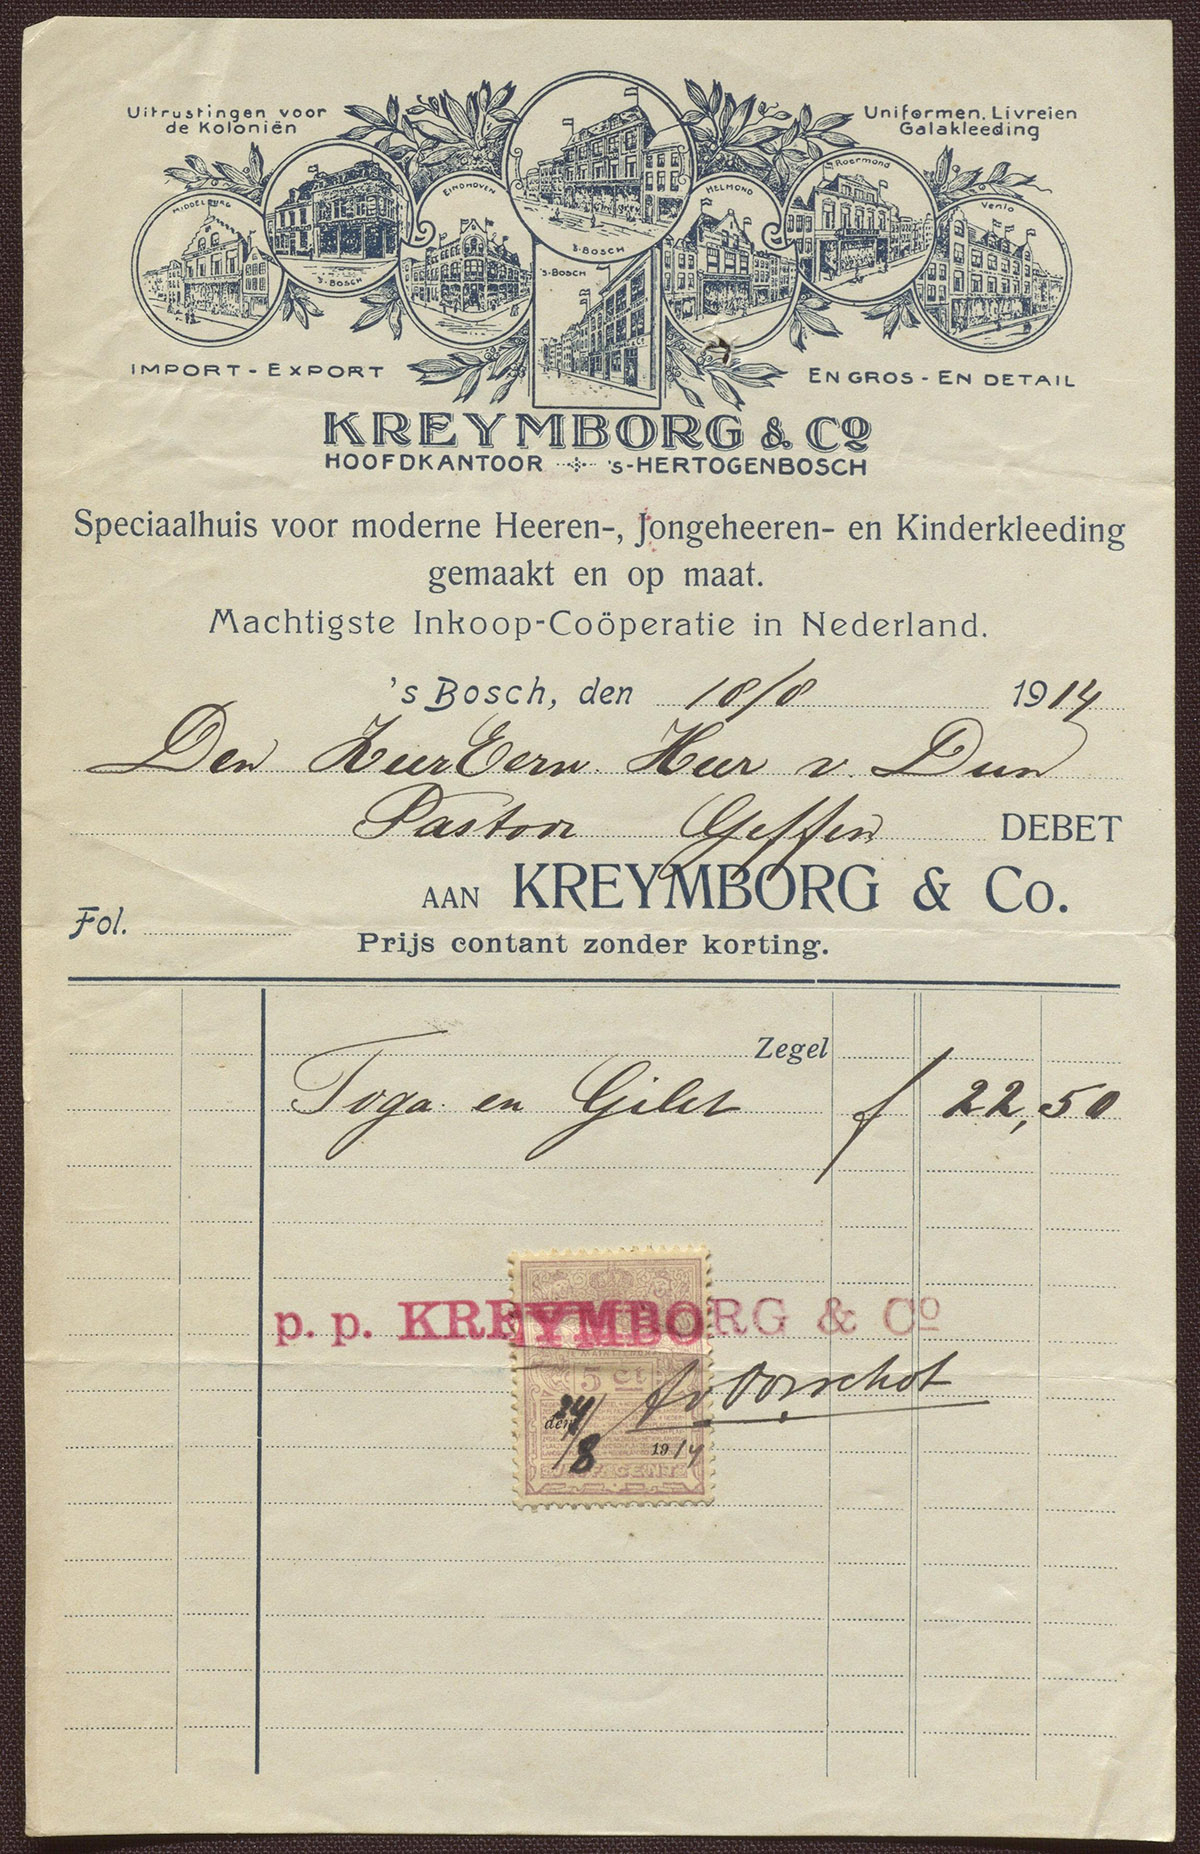 Uitrustingen voor
de Koloniën
Uniformen, Livreien
Galakleeding
MIDDELBURG
'S-BOSCH
EINDHOVEN
'S-BOSCH
'S-BOSCH
HELMOND
ROERMOND
VENLO
IMPORT - EXPORT
EN GROS - EN DETAIL
KREYMBORG & Co
HOOFDKANTOOR 's-HERTOGENBOSCH
Speciaalhuis voor moderne Heeren-, Jongeheeren- en Kinderkleeding
gemaakt en op maat.
Machtigste Inkoop-Coöperatie in Nederland.
's Bosch, den 18/8 1914
Den ZeerEerw. Heer v. Dun
Pastoor Geffen DEBET
AAN KREYMBORG & Co.
Fol.
Prijs contant zonder korting.
Zegel
Toga en Gilet f 22,50
p. p. KREYMBORG & Co
5 ct
v Oorschot
den 24/8 1914
VIJF CENT